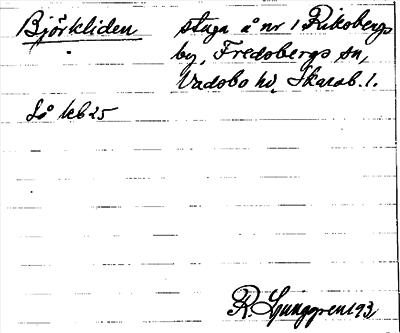 Björkliden stuga å nr 1 Riksbergs
by, Fredsbergs sn,
Vadsbo hd, Skarab. l.
Så kb 25
R. Ljunggren 193